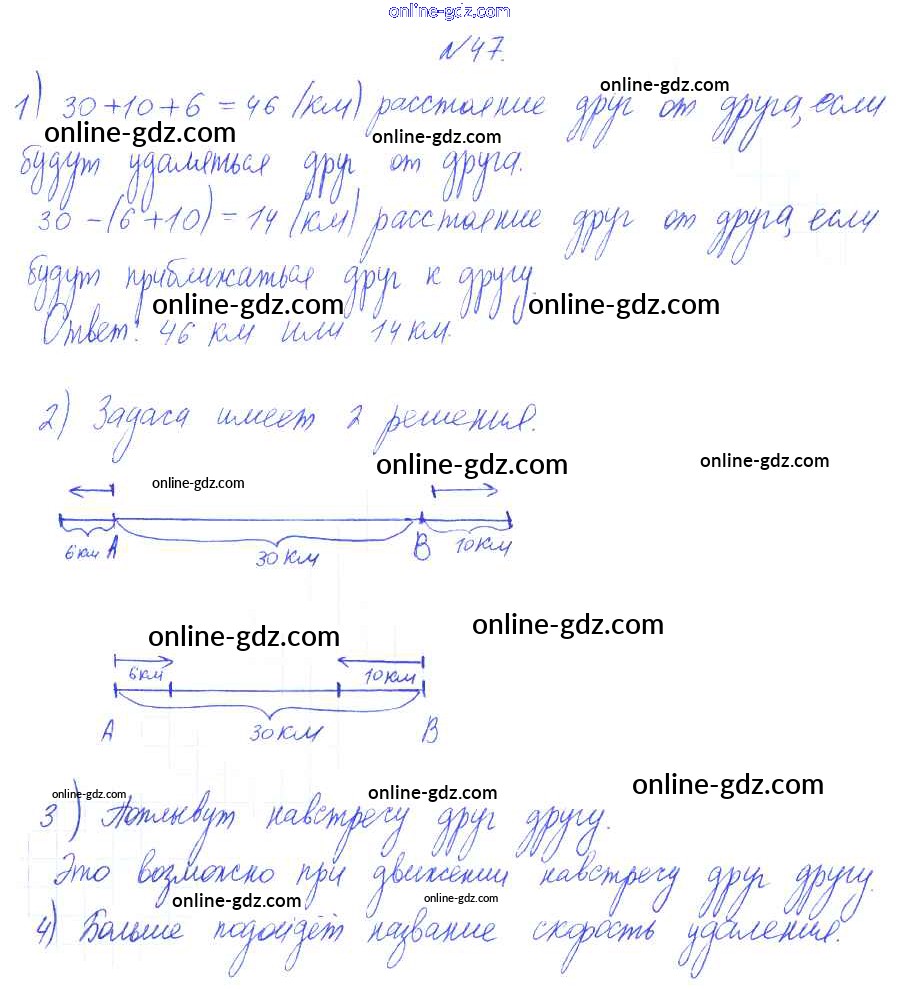 online-gdz.com
№47.
1) 30+10+6=46 (км) расстояние друг от друга, если
online-gdz.com
online-gdz.com
online-gdz.com
будут удаляться друг от друга.
30-(6+10)=14 (км) расстояние друг от друга, если
будут приближаться друг к другу.
online-gdz.com
online-gdz.com
Ответ: 46 км или 14 км.
2) Задача имеет 2 решения.
online-gdz.com
online-gdz.com
online-gdz.com
6км A 30км B 10км
online-gdz.com
online-gdz.com
6км 10км
A 30км B
online-gdz.com
online-gdz.com
online-gdz.com
3) Поплывут навстречу друг другу.
Это возможно при движении навстречу друг другу.
online-gdz.com
online-gdz.com
4) Больше подойдёт название скорость удаления.